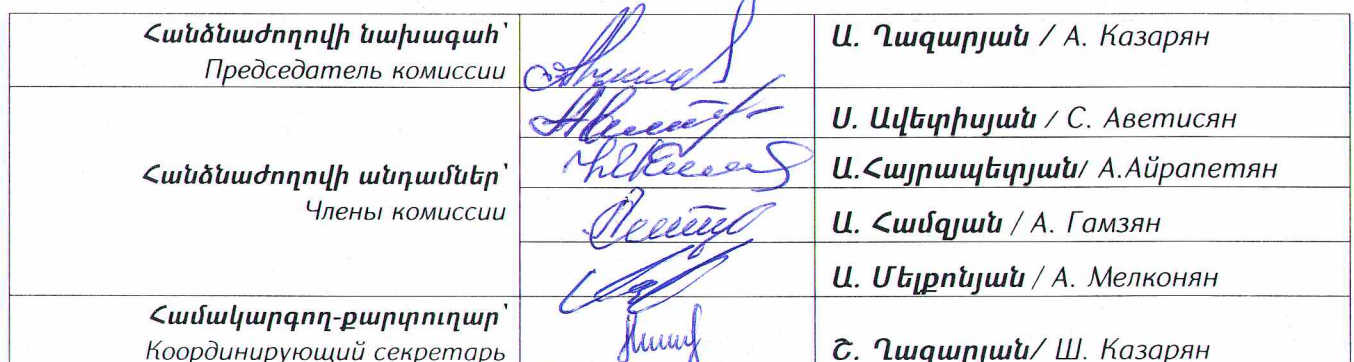 Հանձնաժողովի նախագահ՝
Председатель комиссии
Ա. Ղազարյան / А. Казарян
Ս. Ավետիսյան / С. Аветисян
Հանձնաժողովի անդամներ՝
Члены комиссии
Ա.Հայրապետյան/ А.Айрапетян
Ա. Համզյան / А. Гамзян
Ա. Մելքոնյան / А. Мелконян
Համակարգող-քարտուղար՝
Координирующий секретарь
Շ. Ղազարյան/ Ш. Казарян